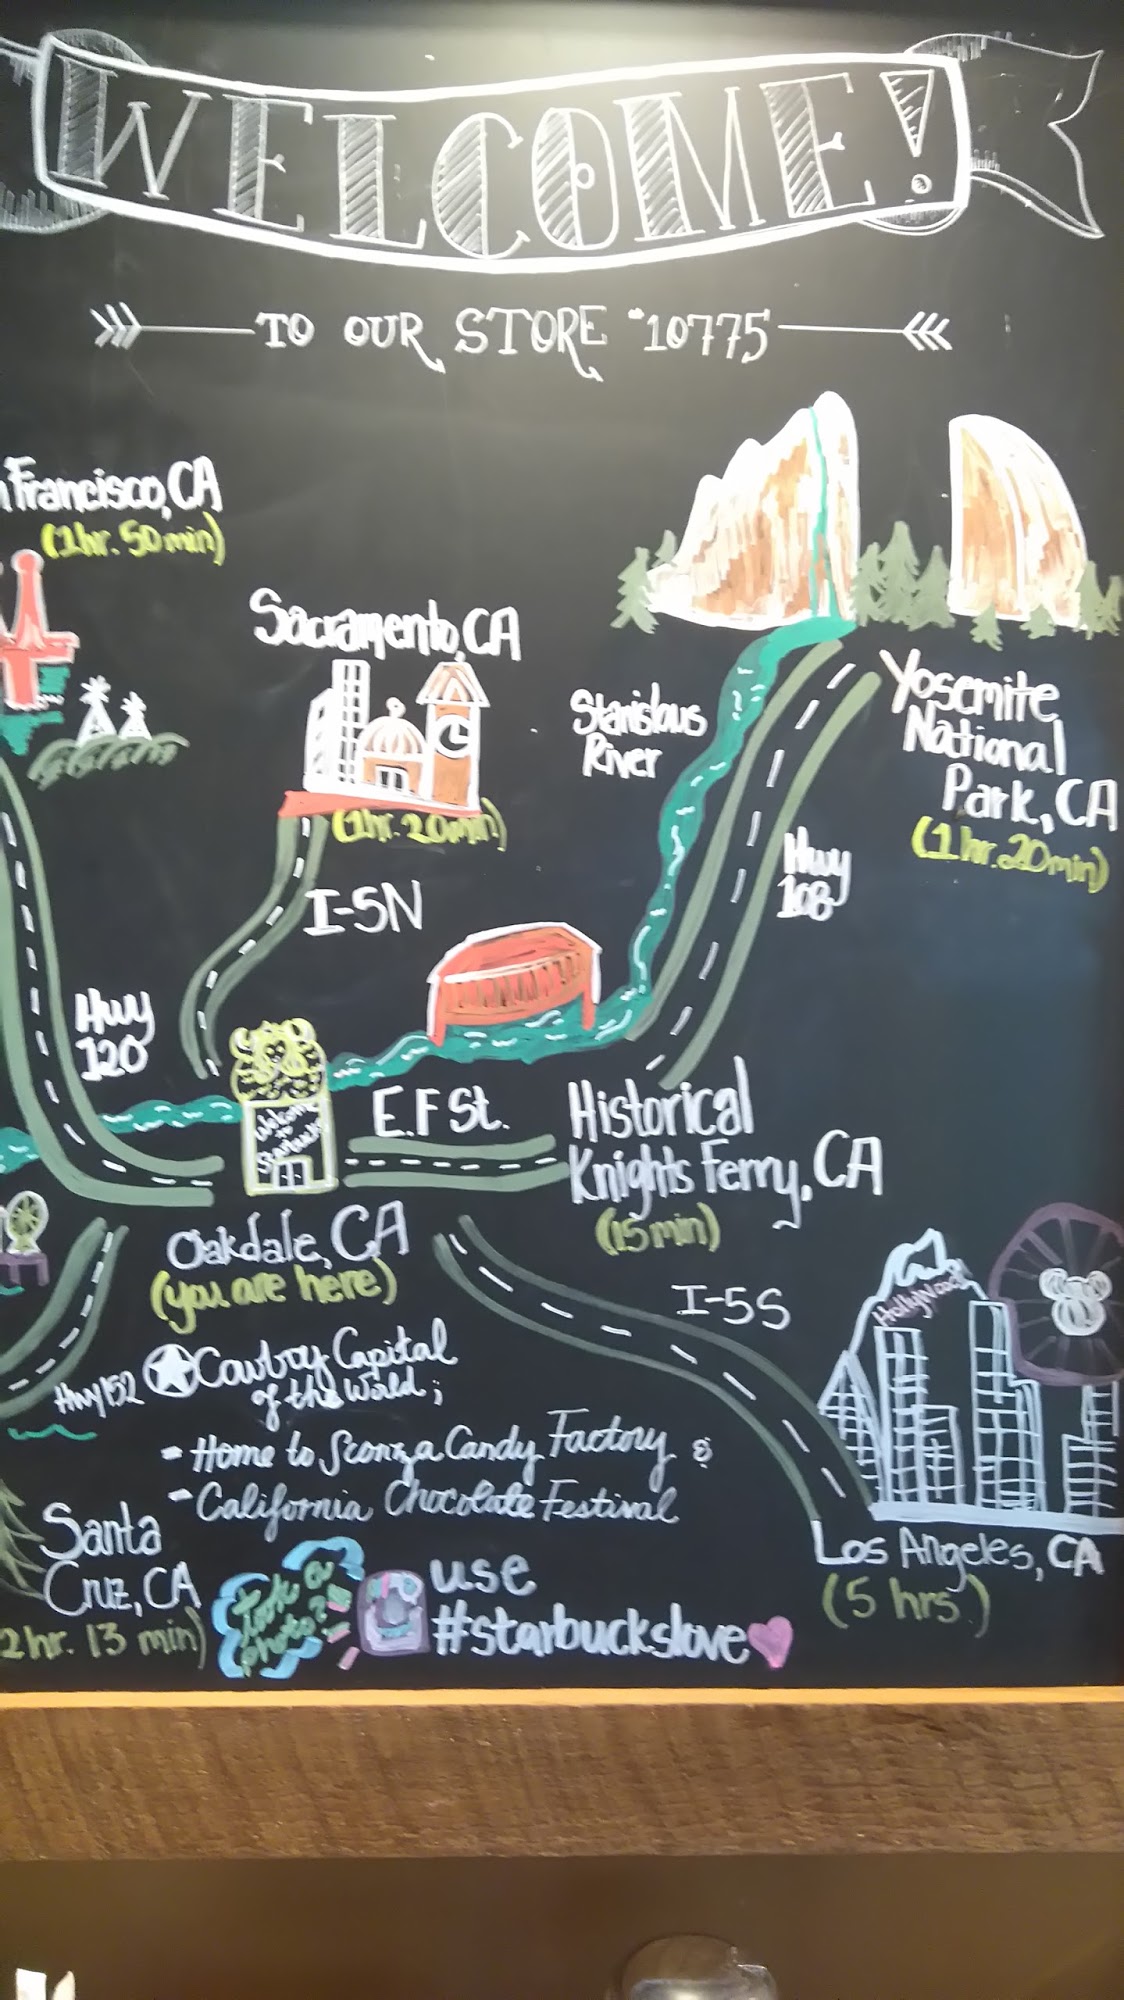 WELCOME!
TO OUR STORE #10775
n Francisco, CA
(1 hr. 50 min)
Sacramento, CA
(1 hr. 20 min)
I-5N
Stanislaus
River
Yosemite
National
Park, CA
(1 hr. 20 min)
Hwy
108
Hwy
120
Welcome
to
Starbucks
E. F St.
Historical
Knights Ferry, CA
(15 min)
Oakdale, CA
(you are here)
I-5S
Hollywood
Hwy 152
Cowboy Capital
of the World;
- Home to Sconza Candy Factory &
- California Chocolate Festival
Santa
Cruz, CA
2 hr. 13 min)
Los Angeles, CA
(5 hrs.)
Took a
photo?
use
#starbuckslove